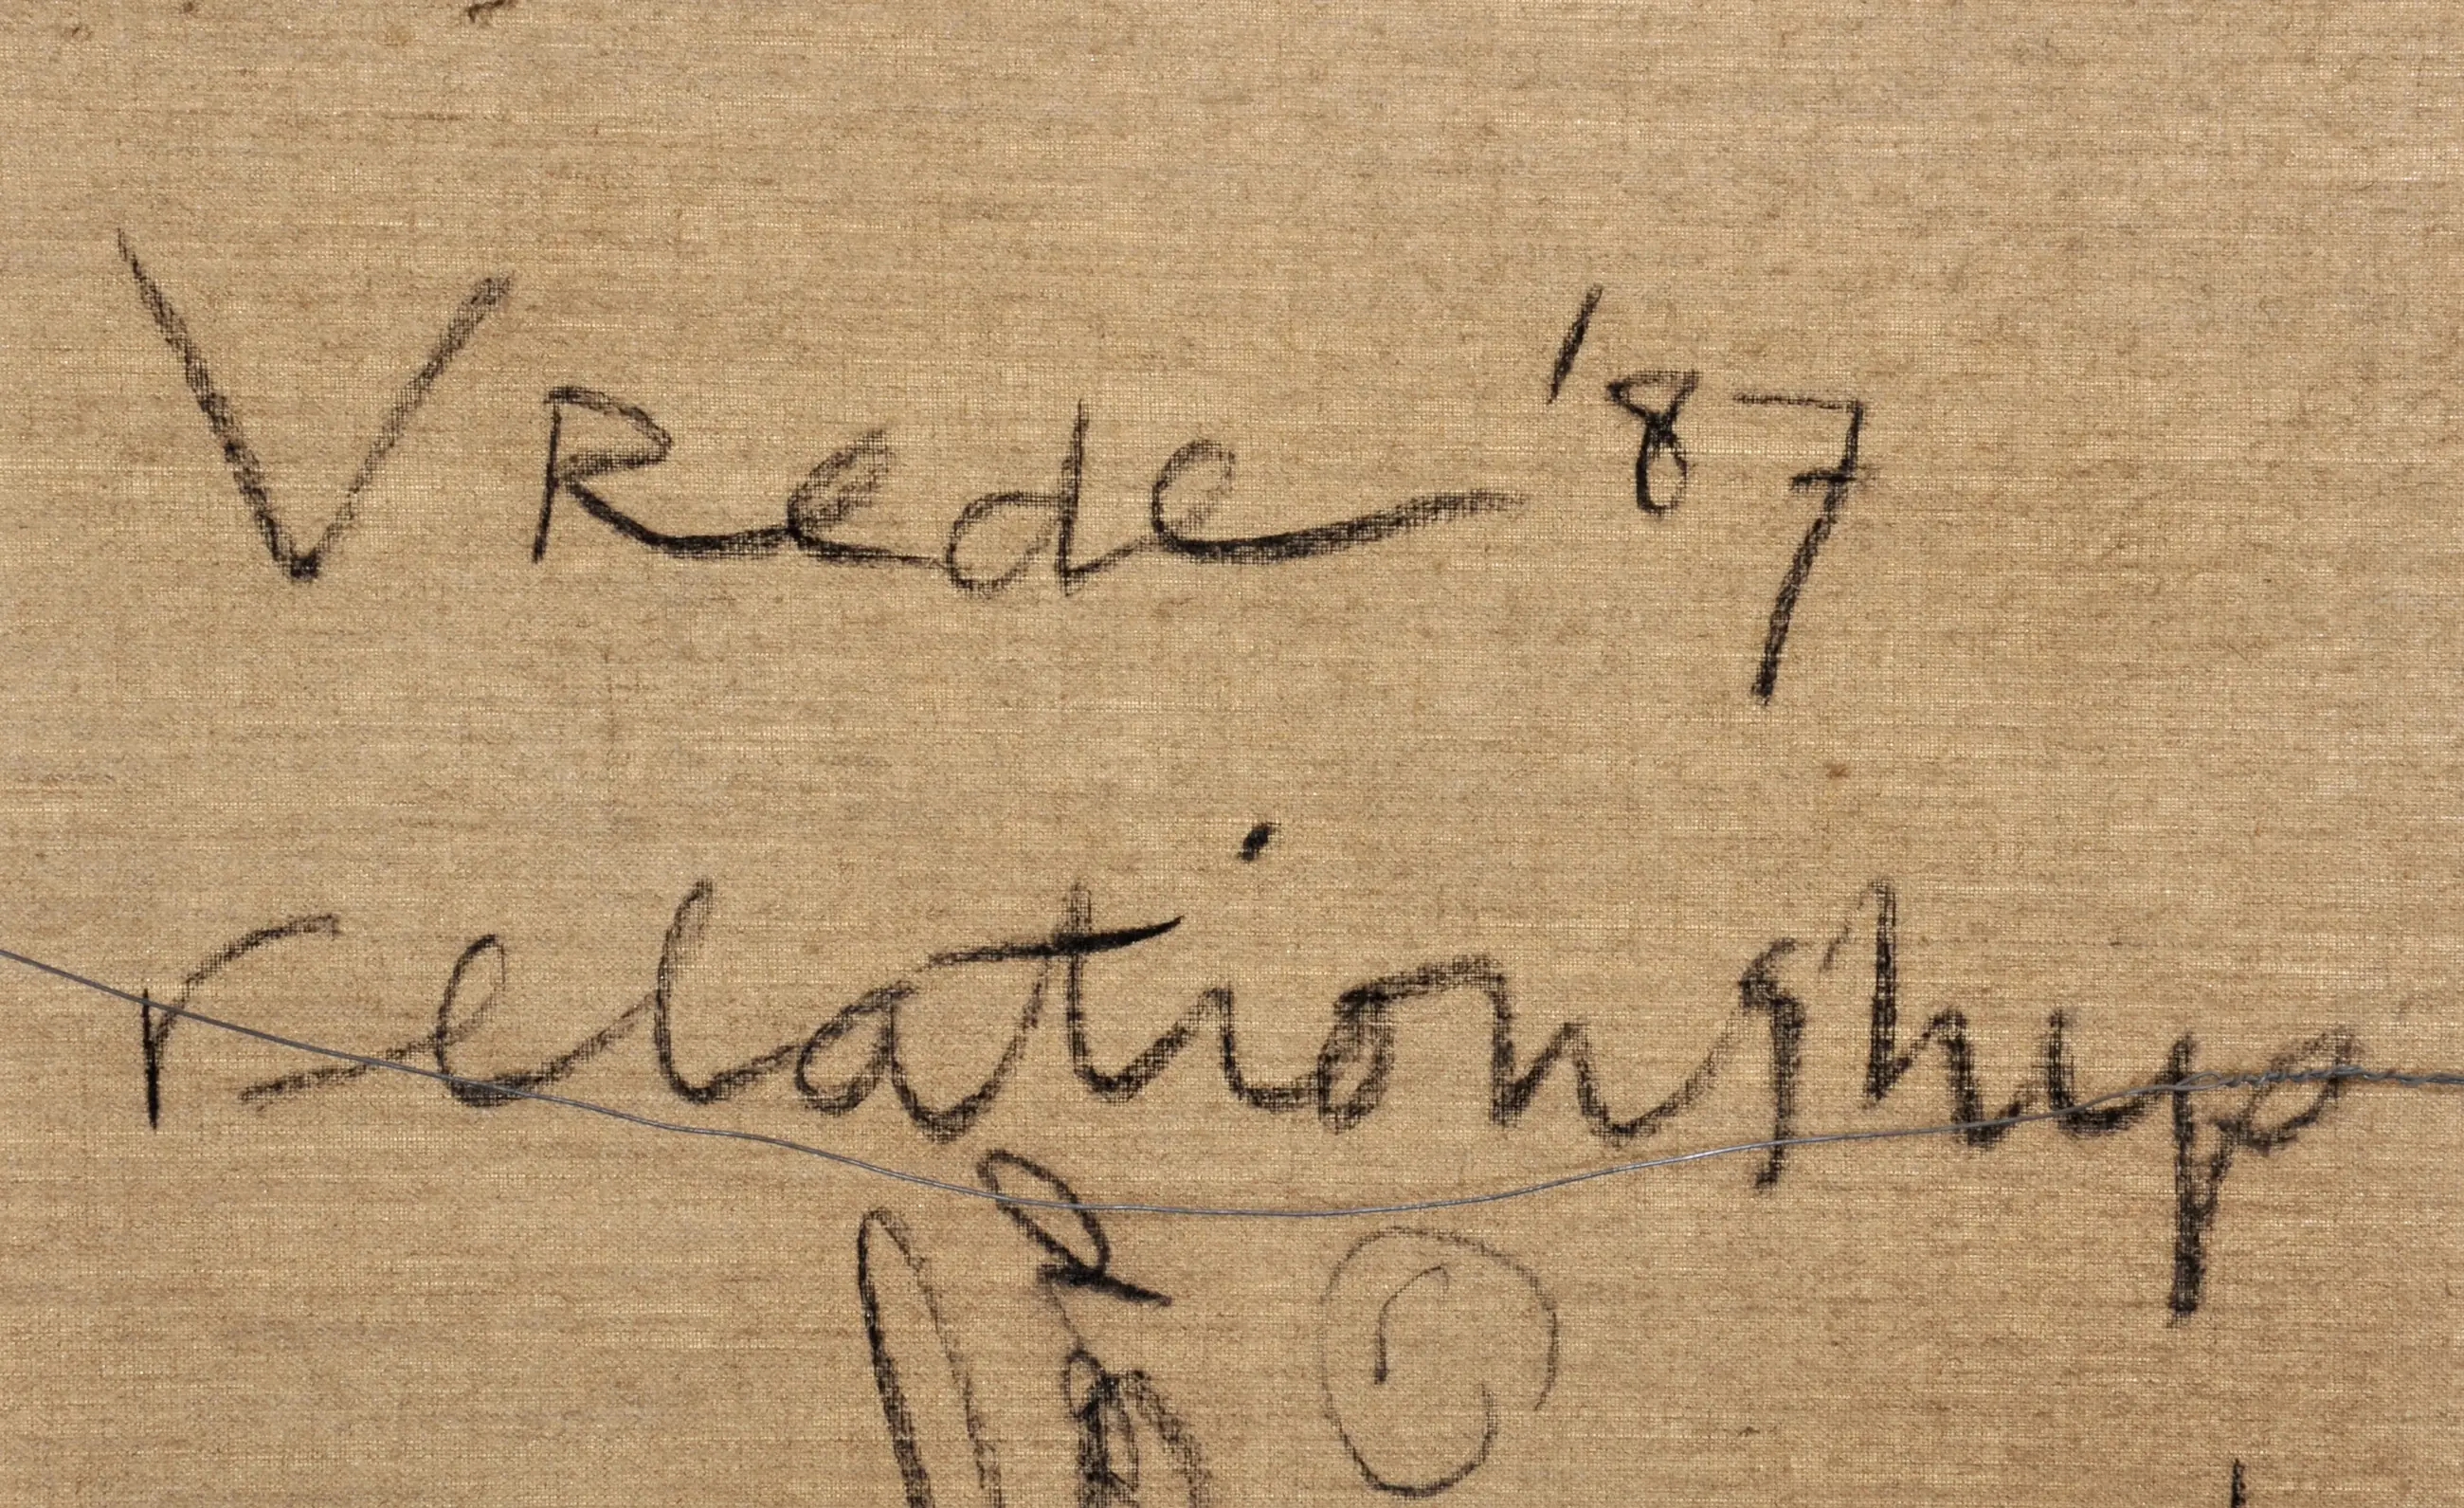 VRede '87
relationship